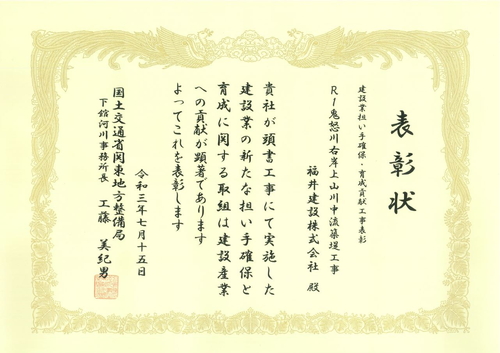 表彰状
建設業担い手確保・育成貢献工事表彰
R1鬼怒川右岸上山川中流築堤工事
福井建設株式会社 殿
貴社が頭書工事にて実施した
建設業の新たな担い手確保と
育成に関する取組は建設産業
への貢献が顕著であります
よってこれを表彰します
令和三年七月十五日
国土交通省関東地方整備局
下館河川事務所長 工藤 美紀男